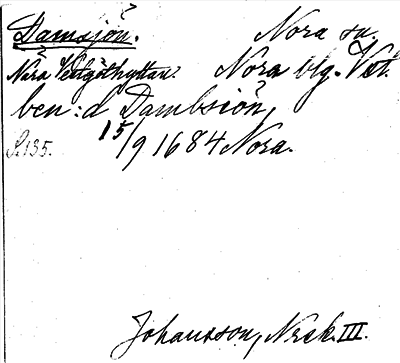 Damsjön. Nora sn.
Nära Vestgöthyttan. Nora blg. Vstm.
ben: d Dambsiön,
S. 135. 15/9 1684 Nora.
Johansson, Nrek. III.